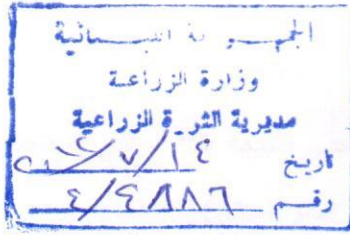 الجمهورية اللبنانية
وزارة الزراعة
مديرية الثروة الزراعية
تاريخ
رقم ٤/٤٨٨٦